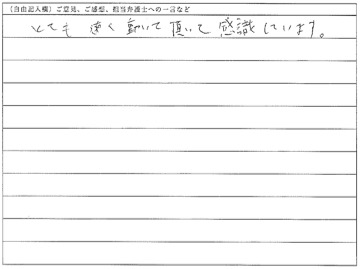 (自由記入欄) ご意見、ご感想、担当弁護士への一言など
とても 速く 動いて 頂いて 感識しています。